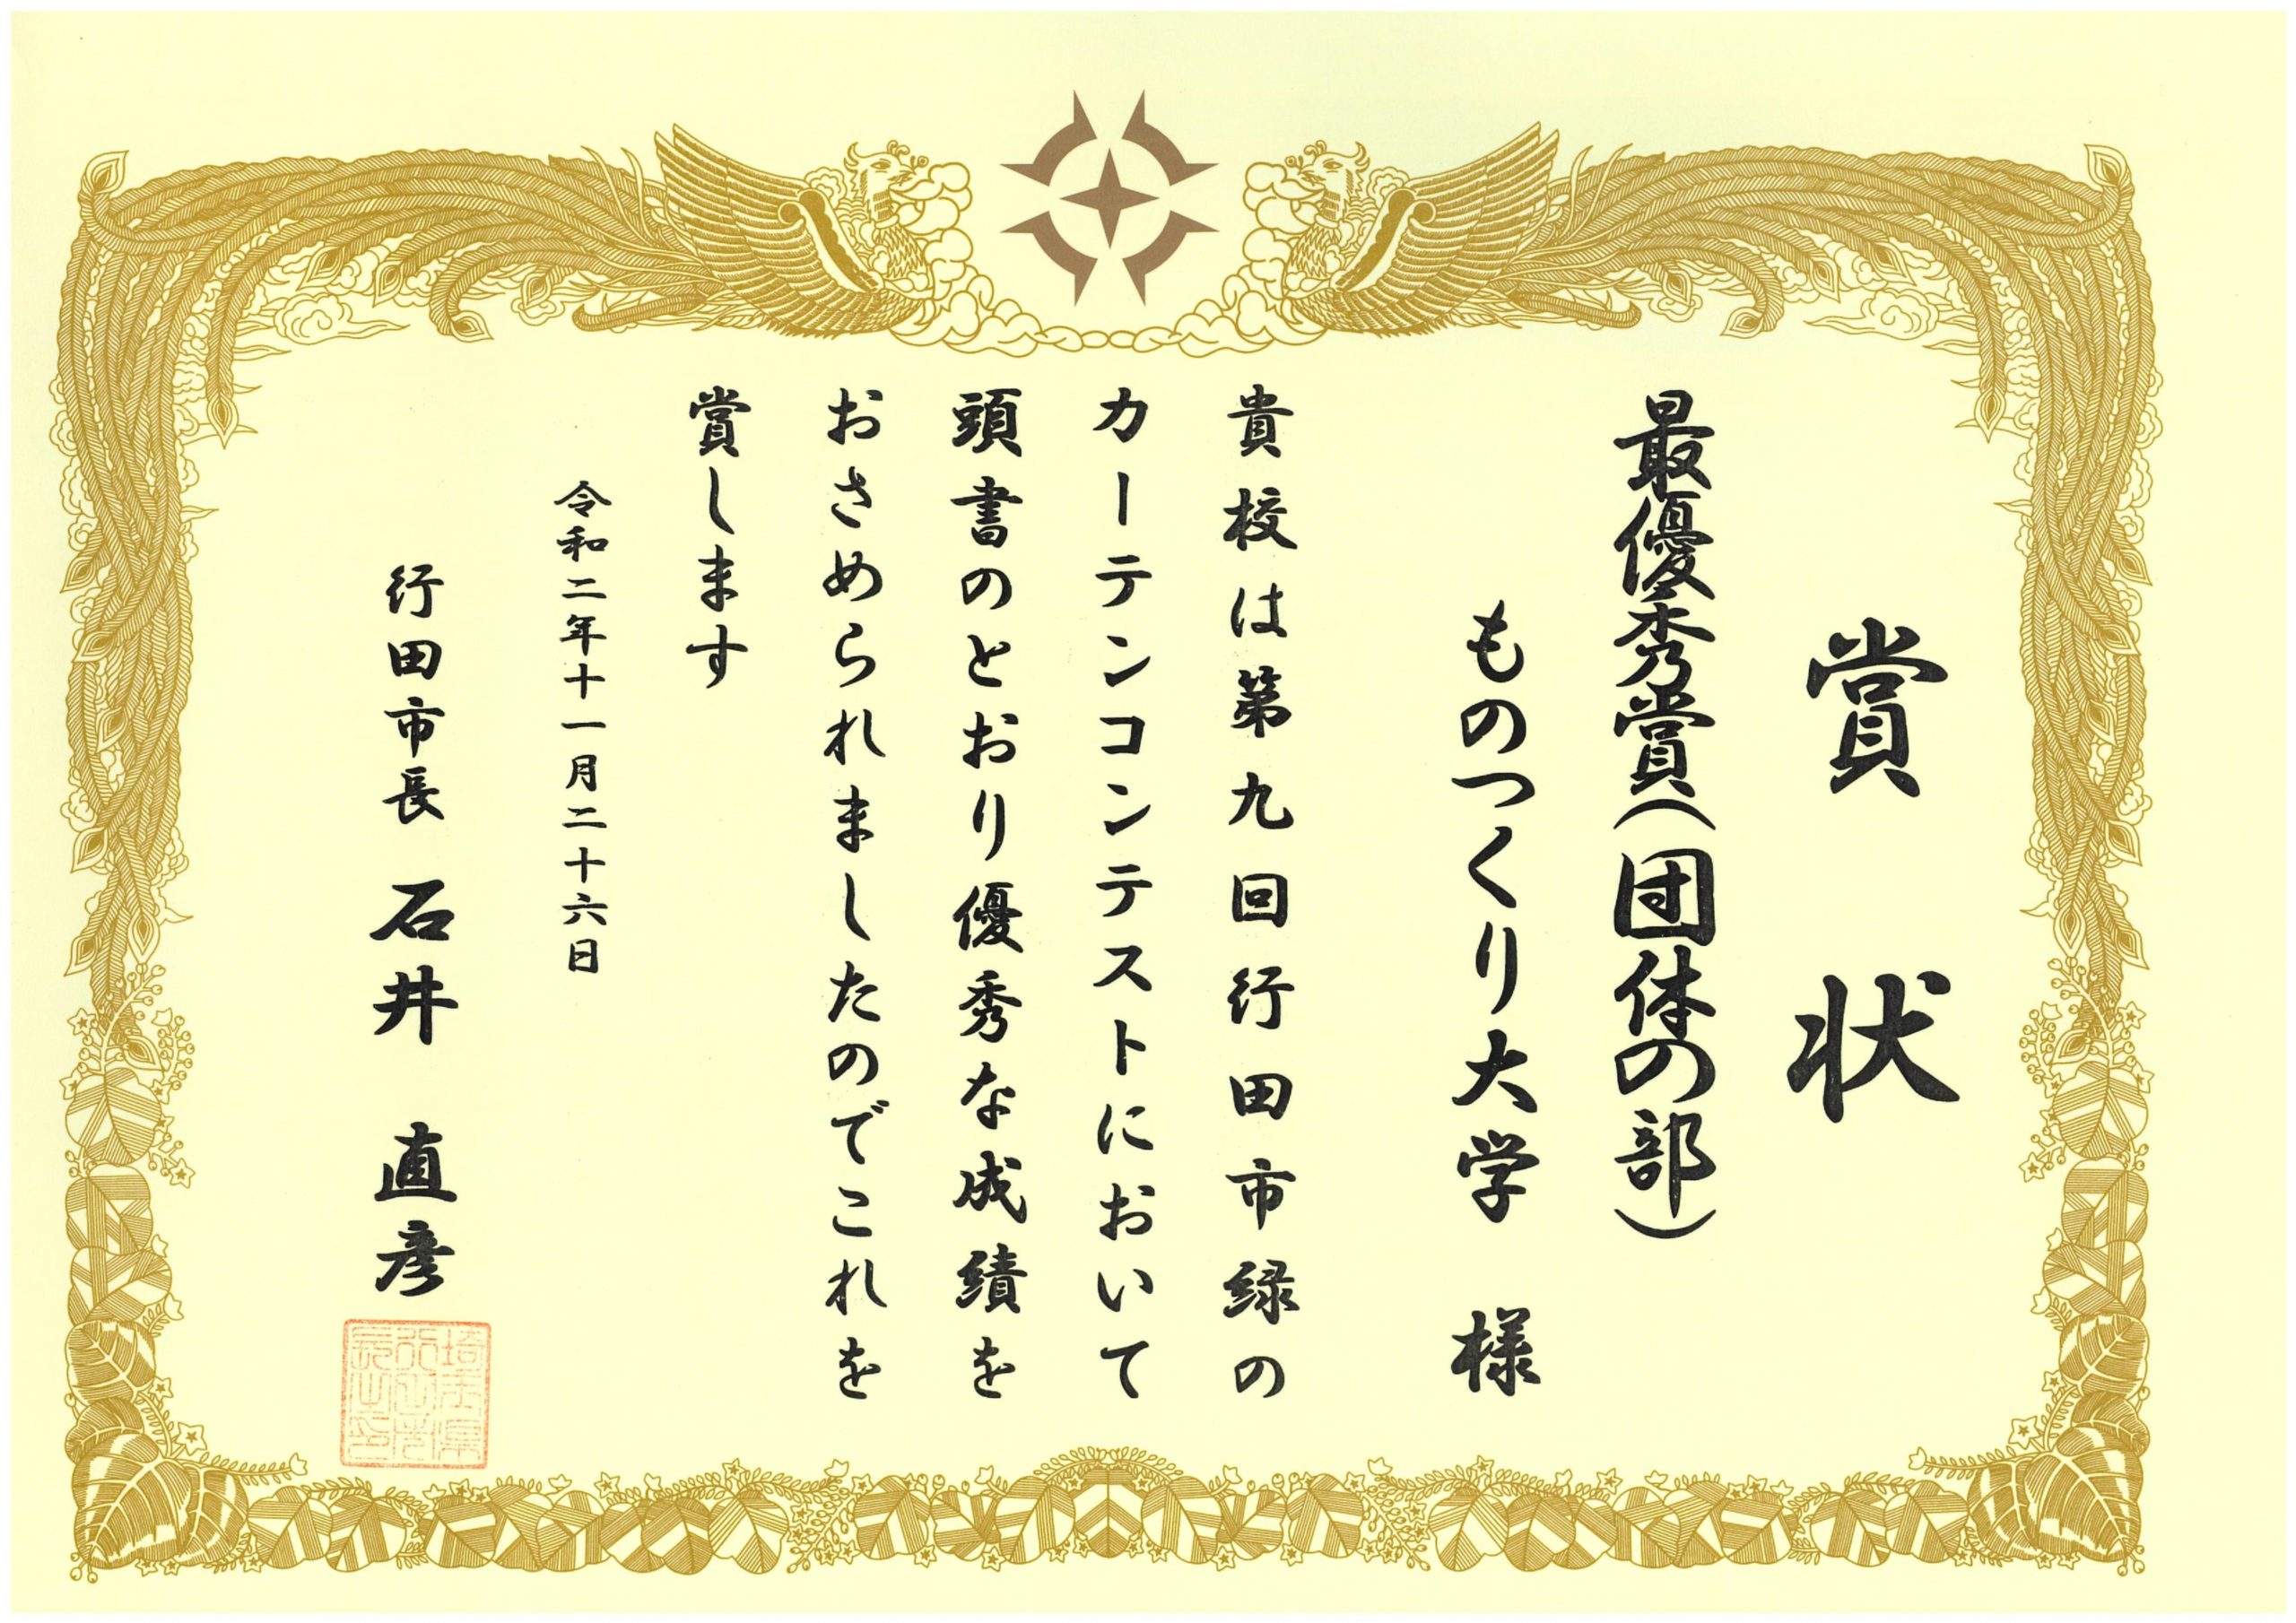 賞状
最優秀賞(団体の部)
ものつくり大学 様
貴校は第九回行田市緑の
カーテンコンテストにおいて
頭書のとおり優秀な成績を
おさめられましたのでこれを
賞します
令和二年十一月二十六日
行田市長 石井 直彦
埼玉県
行田市
長之印